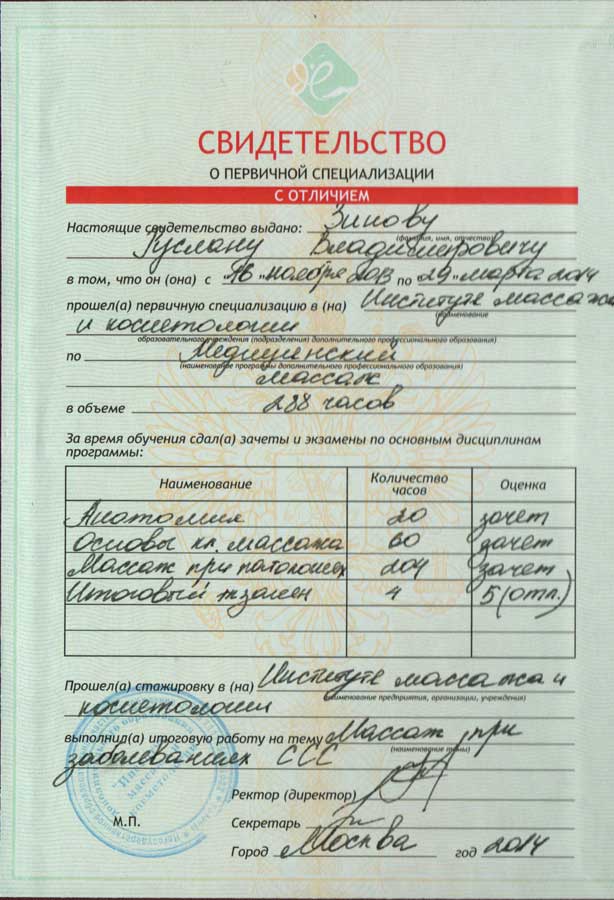 СВИДЕТЕЛЬСТВО
О ПЕРВИЧНОЙ СПЕЦИАЛИЗАЦИИ
С ОТЛИЧИЕМ
Настоящие свидетельство выдано: Зинову
(фамилия, имя, отчество)
Руслану Владимировичу
в том, что он (она) с "16" ноября 2013 по "29" марта 2014
прошел(а) первичную специализацию в (на) Институте массажа
(наименование
и косметологии
образовательного учреждения (подразделения) дополнительного профессионального образования)
по Медицинский
(наименование программы дополнительного профессионального образования)
массаж
в объеме 288 часов
За время обучения сдал(а) зачеты и экзамены по основным дисциплинам
программы:
Наименование Количество часов Оценка
Анатомия 20 зачет
Основы кл. массажа 60 зачет
Массаж при патологиях 204 зачет
Итоговый экзамен 4 5 (отл.)
Прошел(а) стажировку в (на) Институте массажа и
(наименование предприятия, организации, учреждения)
косметологии
выполнил(а) итоговую работу на тему Массаж при
(наименование темы)
заболеваниях ССС
Ректор (директор)
М.П. Секретарь
Город Москва год 2014